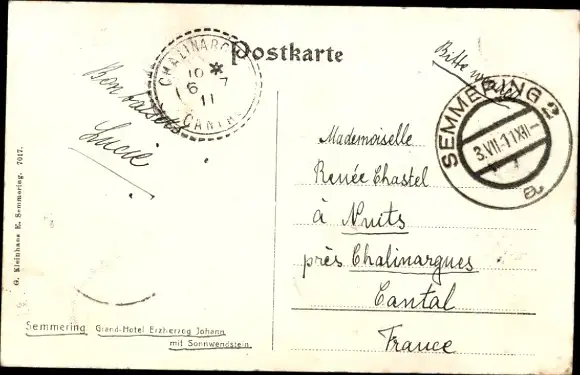 Postkarte
CHALINARGUES
10 *
6 7
11
CANTAL
Bons baisers
Lucie
Bitte
SEMMERING 2
3.VII.11XII-
Mademoiselle
Renée Chastel
à Nuits
près Chalinargues
Cantal
France
G. Kleinhans E. Semmering. 7017.
Semmering Grand-Hotel Erzherzog Johann
mit Sonnwendstein.